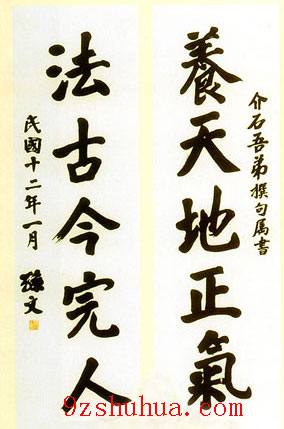 介石吾弟撰句属書
養天地正氣
法古今完人
民國十二年一月
孫文
9zshuhua.com